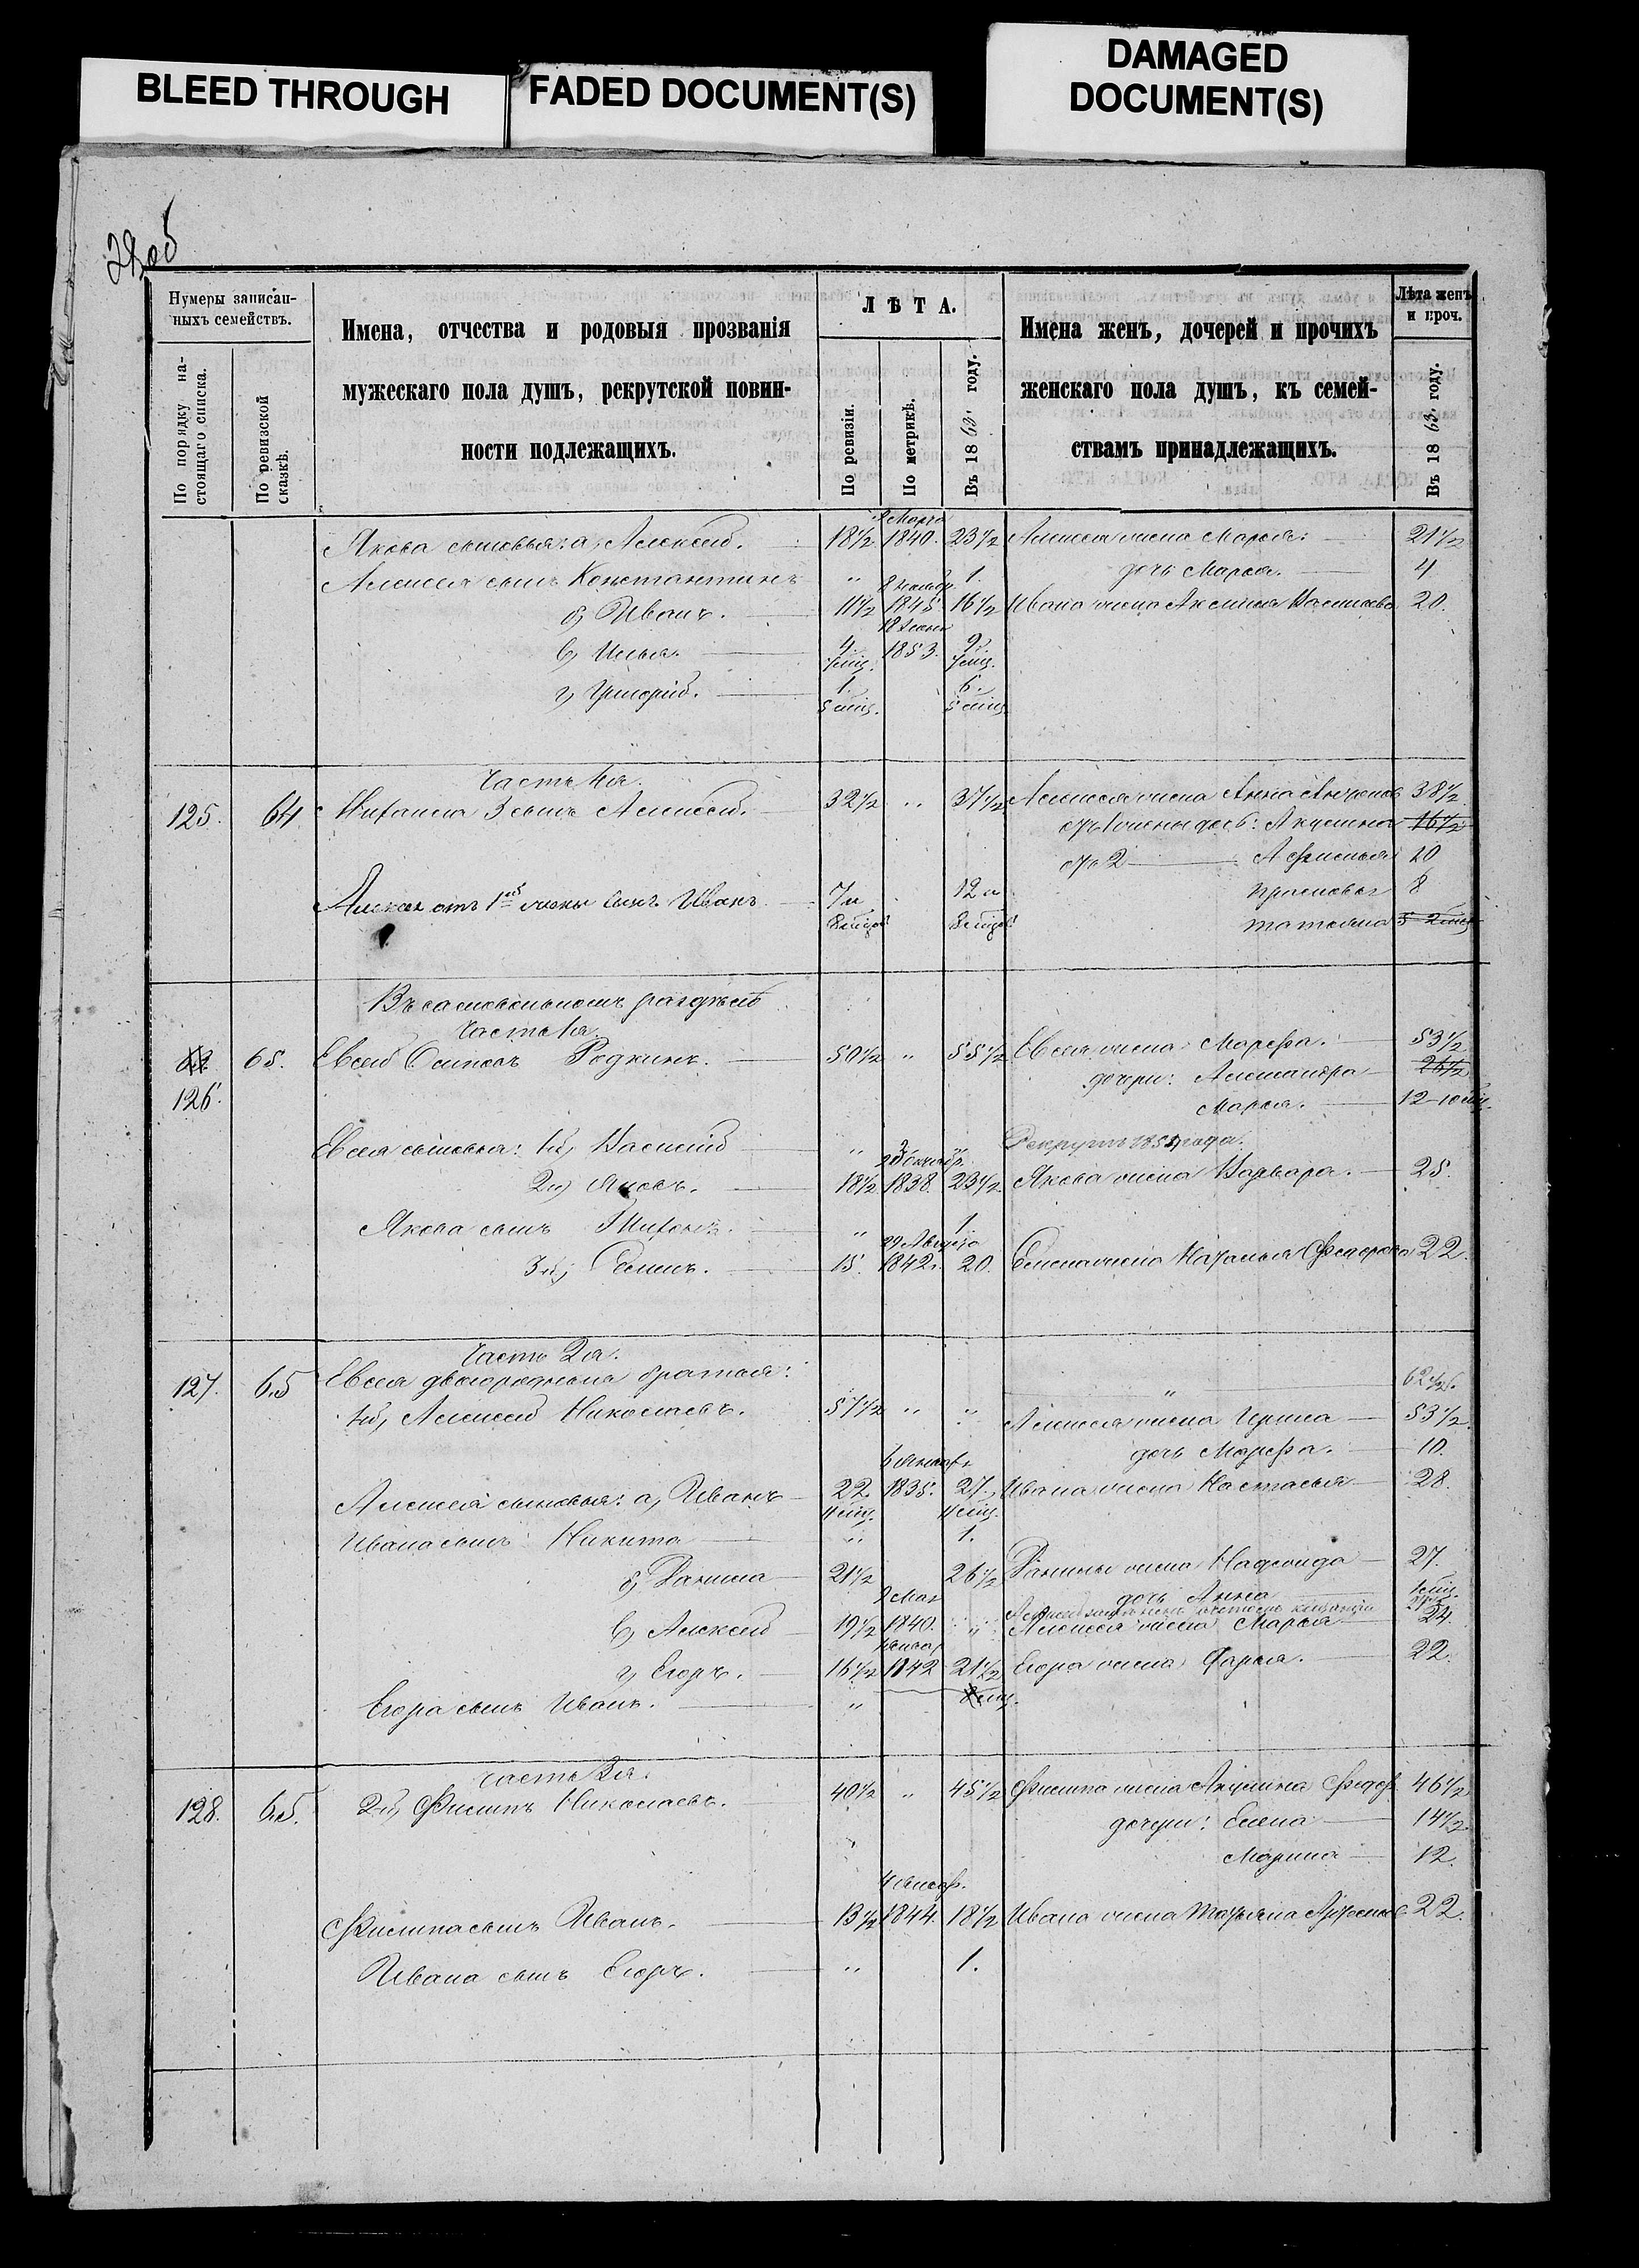 BLEED THROUGH
FADED DOCUMENT(S)
DAMAGED
DOCUMENT(S)
28 об
Нумеры записан-
ныхъ семействъ.
По порядку на-
стоящаго списка.
По ревизской
сказкѣ.
Имена, отчества и родовыя прозванія
мужескаго пола душъ, рекрутской повин-
ности подлежащихъ.
ЛѢТА.
По ревизіи.
По метрикѣ.
Въ 1863. году.
Имена женъ, дочерей и прочихъ
женскаго пола душъ, къ семей-
ствамъ принадлежащихъ.
Лѣта женъ
и проч.
Въ 1863. году.
2 Марта
Якова сыновья: а, Алексей. 18½ 1840. 23½ Алексея жена Марья: 21½
Алексея сынъ Константинъ " 1. дочь Марья. 4
б, Иванъ. 11½ 1845. 16½ Ивана жена Аксинья Васильева 20.
в, Илья. 4. 1853. 9.
7 мѣц. 7 мѣц.
г, Григорій. 1. 6.
5 мѣц. 5 мѣц.
Часть 4я.
125. 64 3 сынъ Алексей. 32½ " 37½ Алексея жена Анна 38½
отъ 1 жены дочь: Акулина 16½
отъ 2 Афимья 10
Алексея отъ 1й жены сынъ Иванъ 7 и 12 и Прасковья 8
8 мѣцов 8 мѣцов Татьяна 5 2 мѣц
Въ самовольномъ раздѣлѣ
Часть 1я
65. Евсей Осиповъ Родкинъ. 50½ " 55½ Евсея жена Марфа. 53½
126. дочери: Александра 26½
Марья. 12 10 мѣц.
Евсея сыновья: 1й, Василій " " Рекрутъ 1854 года.
2й, Яковъ. 18½ 1838. 23½. Якова жена Варвара. 25.
Якова сынъ " 1.
29 Августа
3й, Семенъ. 15. 1842. 20. Семена жена Наталья Федорова 22.
Часть 2я.
127. 65 Евсея двоюродныя братья:
" 62½
1й, Алексей Николаевъ. 57½ " " Алексея жена Ирина 53½
дочь Марфа. 10.
Алексея сыновья: а, Иванъ 22. 1835. 27. Ивана жена Настасья 28.
4 мѣц. 4 мѣц.
Ивана сынъ Никита " 1.
б, Данила 21½ 26½ Данилы жена Надежда 27.
дочь Анна 1 мѣц.
9 Мая
в, Алексей 19½ 1840. " Алексея жена Марья 24.
г, Егоръ. 16½ 1842 21½ Егора жена Дарья. 22.
Егора сынъ Иванъ. " 8 мѣц.
Часть 3я.
128. 65. 2й, Филипъ Николаевъ. 40½ " 45½ Филипа жена Акулина Федор. 46½
дочери: Елена 14½
Марина 12.
4 Январ.
Филипа сынъ Иванъ. 13½ 1844. 18½ Ивана жена Татьяна 22.
Ивана сынъ Егоръ. " 1.